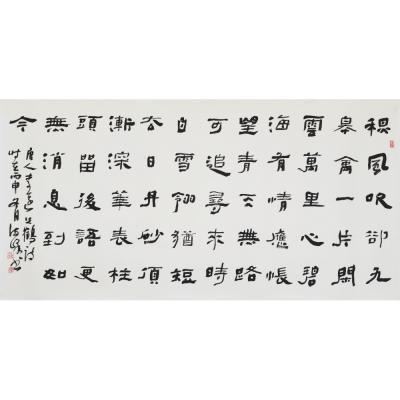 秋風吹卻九
皋禽一片閑
雲萬里心碧
海有情應悵
望青天無路
可追尋來時
白雪翎猶短
去日丹砂頂
漸深華表柱
頭留後語更
無消息到如
今
唐人李遠失鶴詩
時在丙申